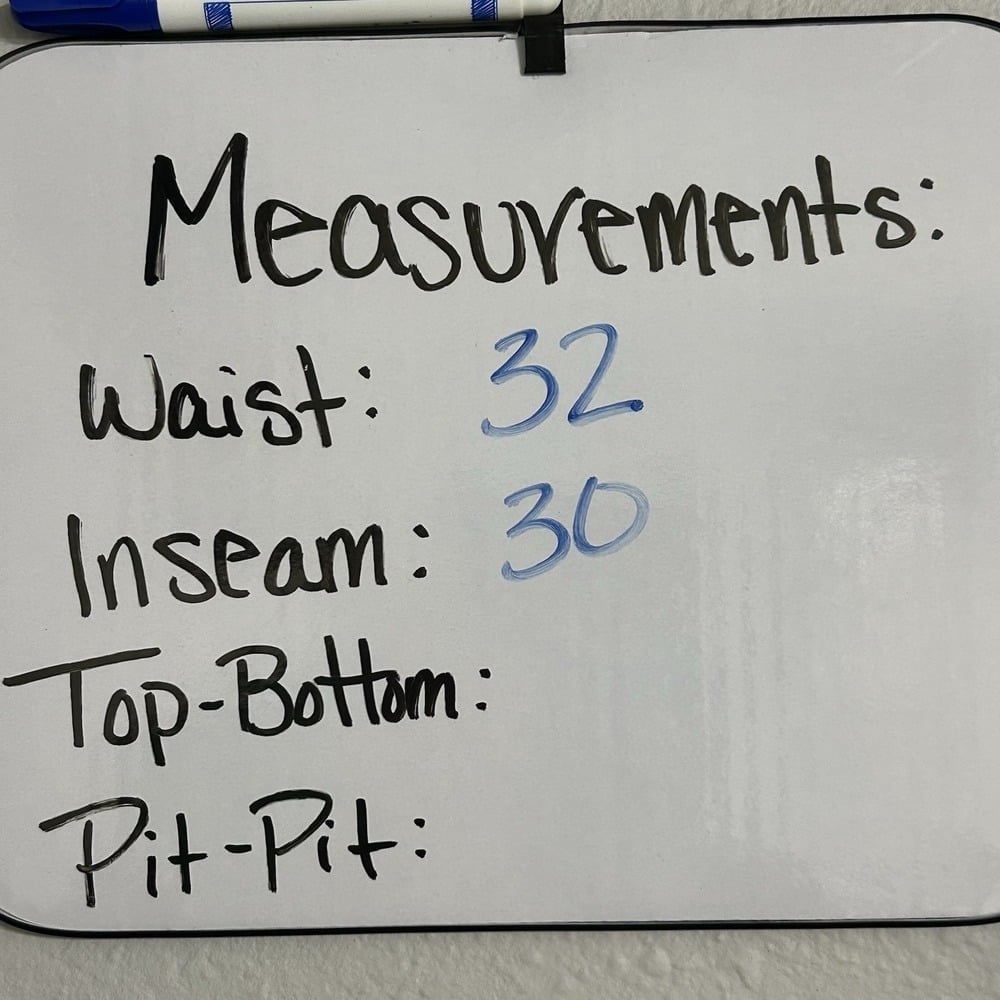 Measurements:
Waist: 32
Inseam: 30
Top-Bottom:
Pit-Pit: